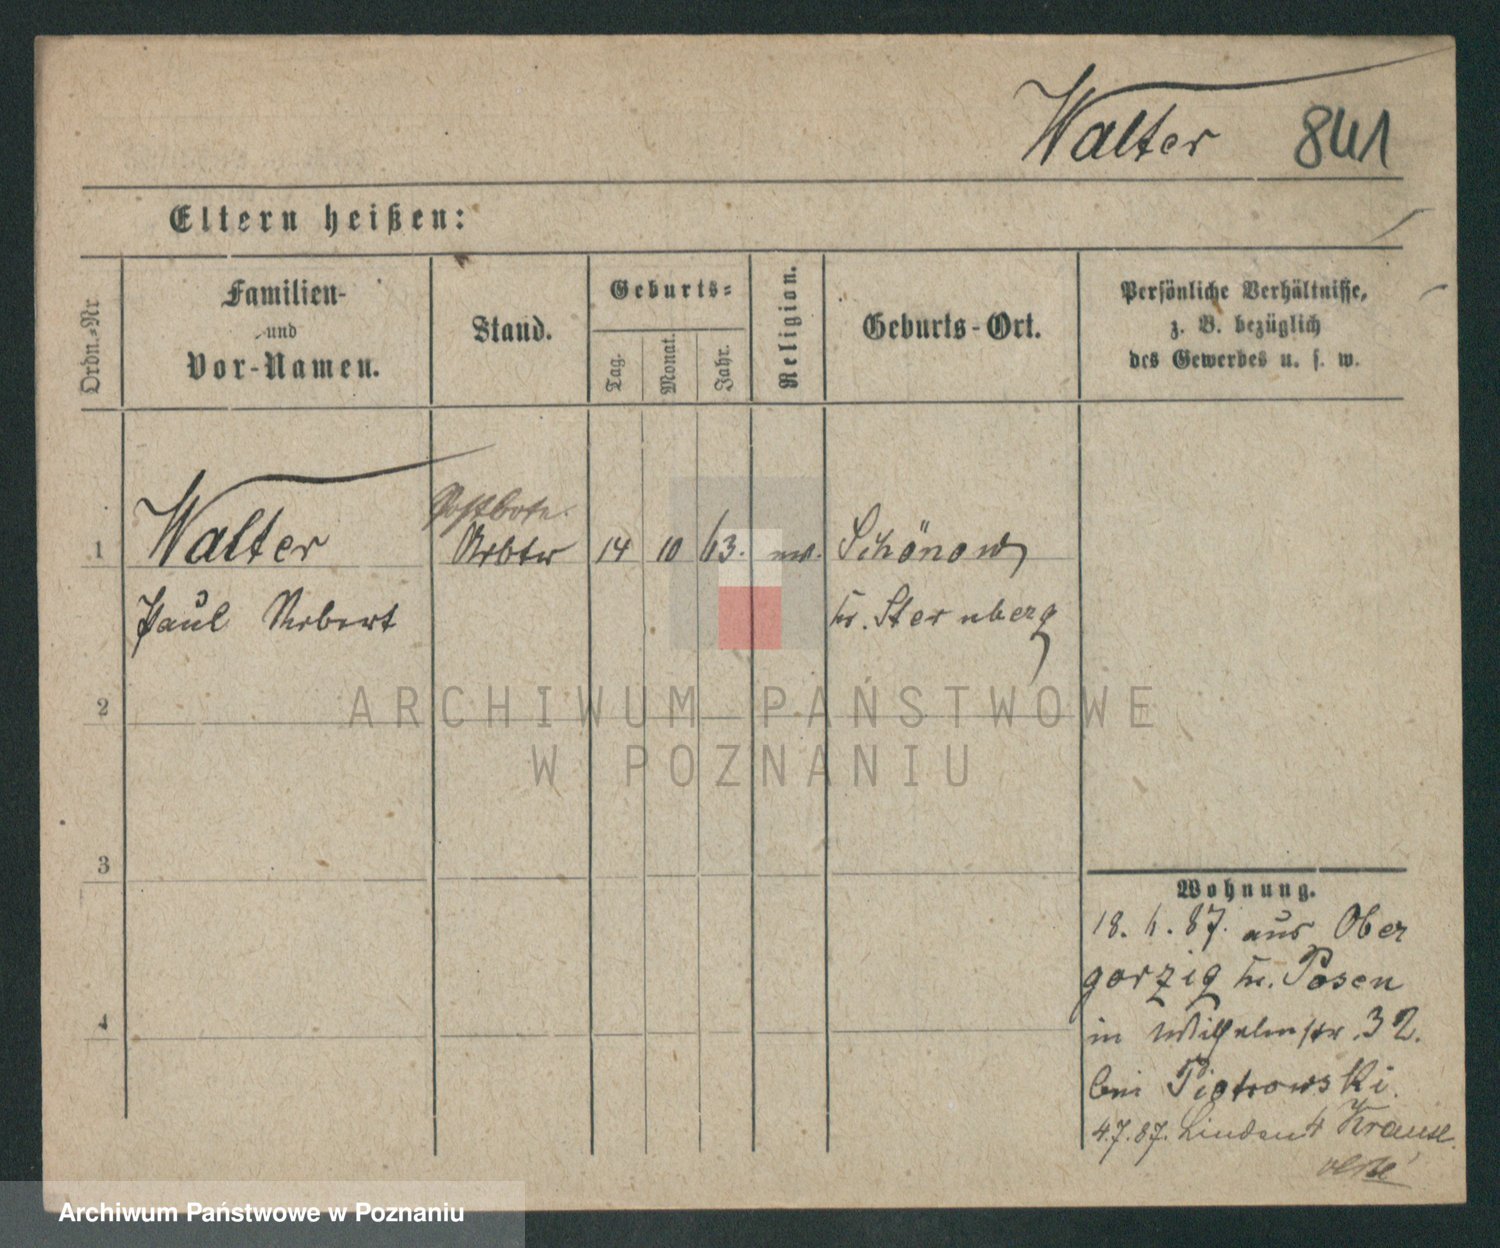 Walter 841
Eltern heißen:
Ordn.-Nr
Familien-
und
Vor-Namen.
Stand.
Geburts-
Tag.
Monat.
Jahr.
Religion.
Geburts-Ort.
Persönliche Verhältnisse,
z. B. bezüglich
des Gewerbes u. s. w.
Postbote
1 Walter Arbtr 14 10 63. Schönow
Paul Robert Kr. Sternberg
2
3
4
Wohnung.
18. 4. 87. aus Ober
gorzig Kr. Posen
in Wilhelmstr. 32.
bei Piotrowski.
4.7.87. Linden 4 Krause
ARCHIWUM PAŃSTWOWE
W POZNANIU
Archiwum Państwowe w Poznaniu